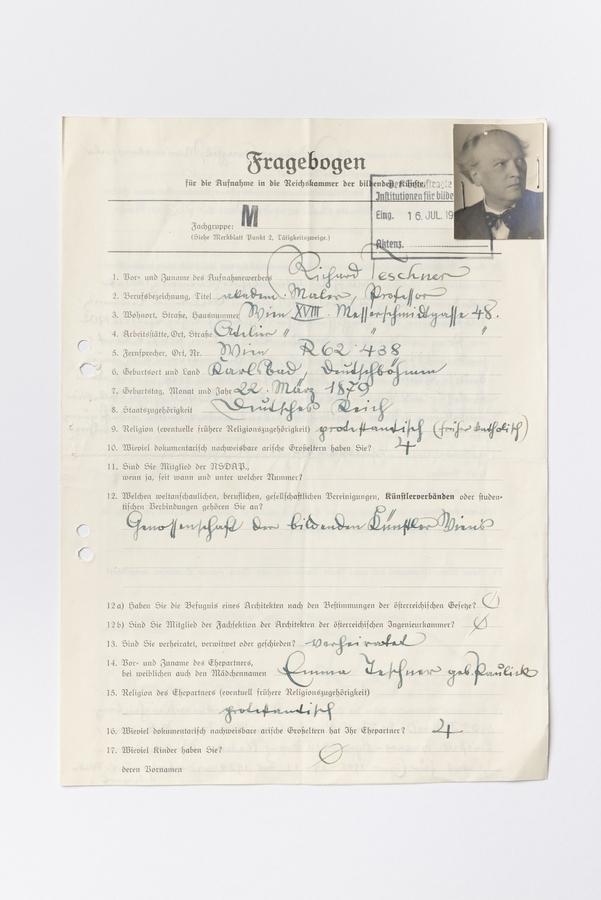 Fragebogen
für die Aufnahme in die Reichskammer der bildenden Künste.
Institutionen für bilde
Eing. 16. JUL. 19
Aktenz.
Fachgruppe: M
(Siehe Merkblatt Punkt 2, Tätigkeitszweige.)
1. Vor- und Zuname des Aufnahmewerbers Richard Teschner
2. Berufsbezeichnung, Titel akadem. Maler, Professor
3. Wohnort, Straße, Hausnummer Wien XVIII. Messerschmidtgasse 48.
4. Arbeitsstätte, Ort, Straße Atelier " " "
5. Fernsprecher, Ort, Nr. Wien R62 438
6. Geburtsort und Land Karlsbad, Deutschböhmen
7. Geburtstag, Monat und Jahr 22. März 1879
8. Staatszugehörigkeit Deutsches Reich
9. Religion (eventuelle frühere Religionszugehörigkeit) protestantisch (früher katholisch)
10. Wieviel dokumentarisch nachweisbare arische Großeltern haben Sie? 4
11. Sind Sie Mitglied der NSDAP.,
wenn ja, seit wann und unter welcher Nummer?
12. Welchen weltanschaulichen, beruflichen, gesellschaftlichen Vereinigungen, Künstlerverbänden oder studen-
tischen Verbindungen gehören Sie an?
Genossenschaft der bildenden Künstler Wiens
12a) Haben Sie die Befugnis eines Architekten nach den Bestimmungen der österreichischen Gesetze? Ø
12b) Sind Sie Mitglied der Fachsektion der Architekten der österreichischen Ingenieurkammer? Ø
13. Sind Sie verheiratet, verwitwet oder geschieden? verheiratet
14. Vor- und Zuname des Ehepartners,
bei weiblichen auch den Mädchennamen Emma Teschner geb. Paulick
15. Religion des Ehepartners (eventuell frühere Religionszugehörigkeit)
protestantisch
16. Wieviel dokumentarisch nachweisbare arische Großeltern hat Ihr Ehepartner? 4
17. Wieviel Kinder haben Sie? Ø
deren Vornamen